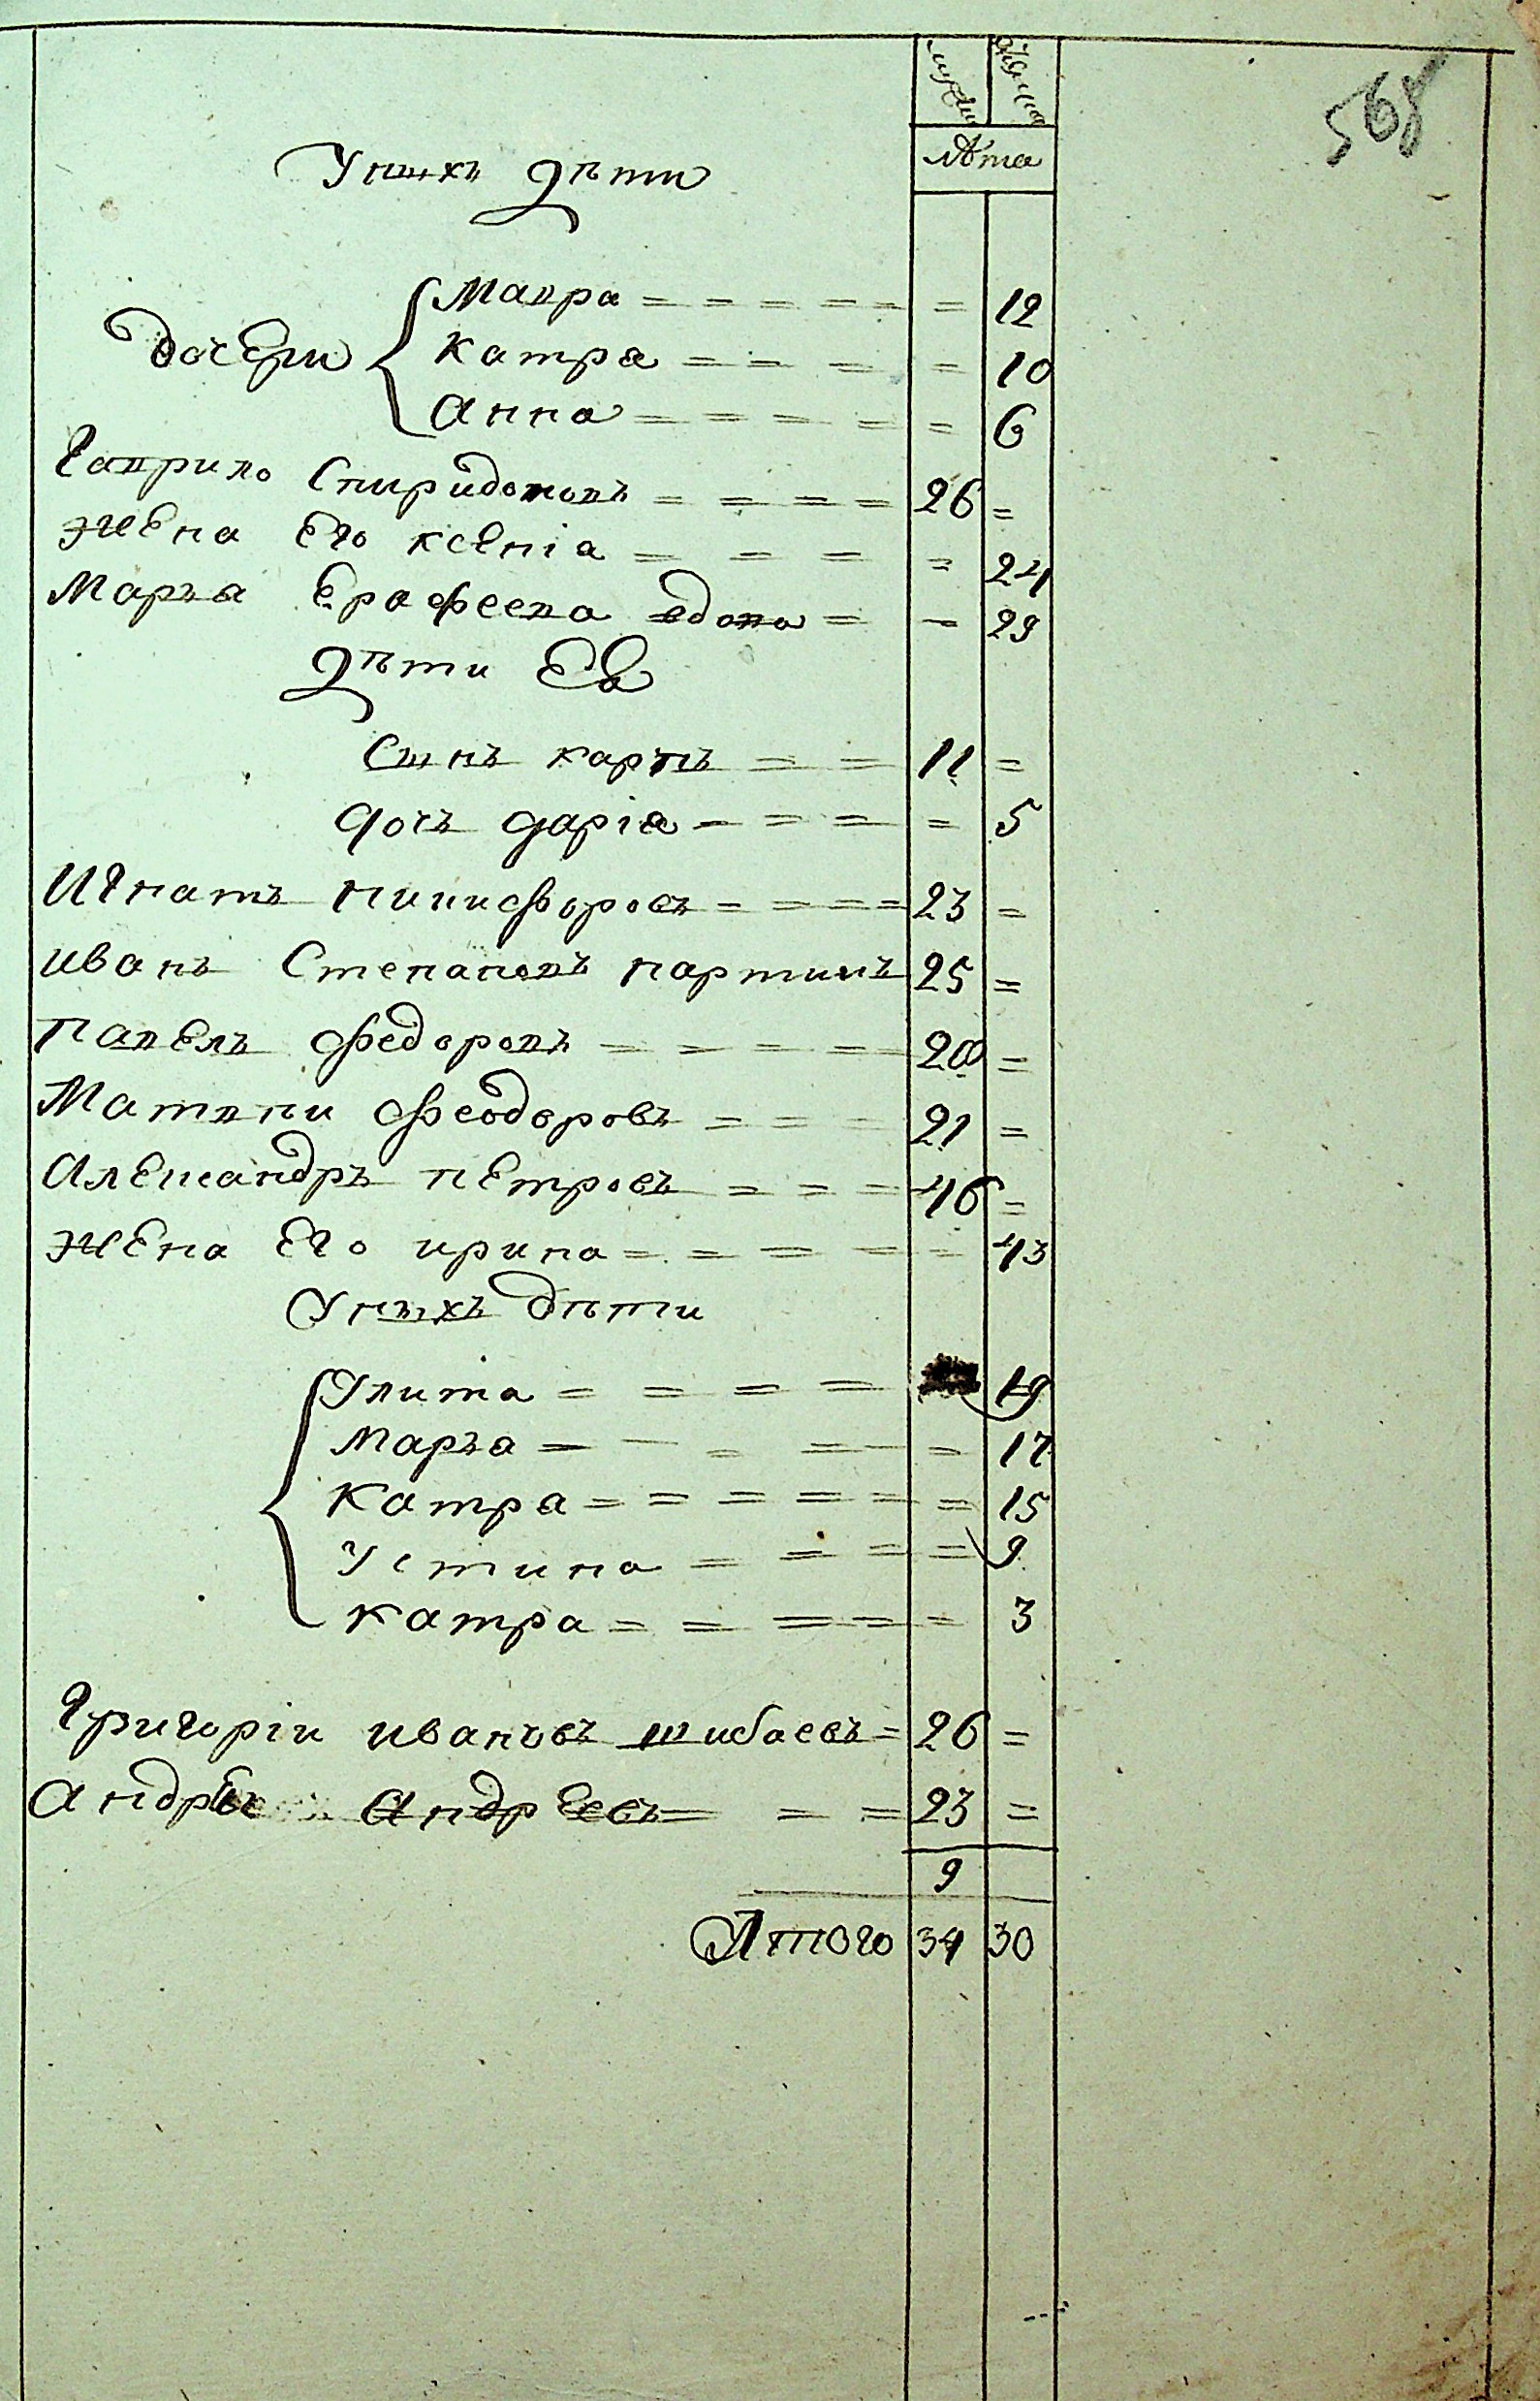 568
лѣта
У нихъ дѣти
дочери { Мавра = = = = = = 12
Катра = = = = 10
Анна = = = = = 6
Гаврило Спиридоновъ = = = = 26 =
жена Его ксенiа = = = = 24
Марья Ерофеева вдова = = 29
дѣти Ея
Сынъ карпъ = = 11 =
дочь дарiа = = = = 5
Игнатъ никифоровъ = = = = 23 =
иванъ Степановъ партинъ 25 =
павелъ федоровъ = = = = 20 =
Матвѣи феодоровъ = = = 21 =
Александръ пЕтровъ = = = 46 =
жена Его ирина = = = = = 43
У ныхъ дѣти
{ Улита = = = = 19
Марья = = = = = 17
Катра = = = = = = 15
Устина = = = = 9
катра = = = = = 3
Григорiи ивановъ шибаевъ = 26 =
Андрѣе Андрѣевъ = = = 23 =
9
Итого 34 30